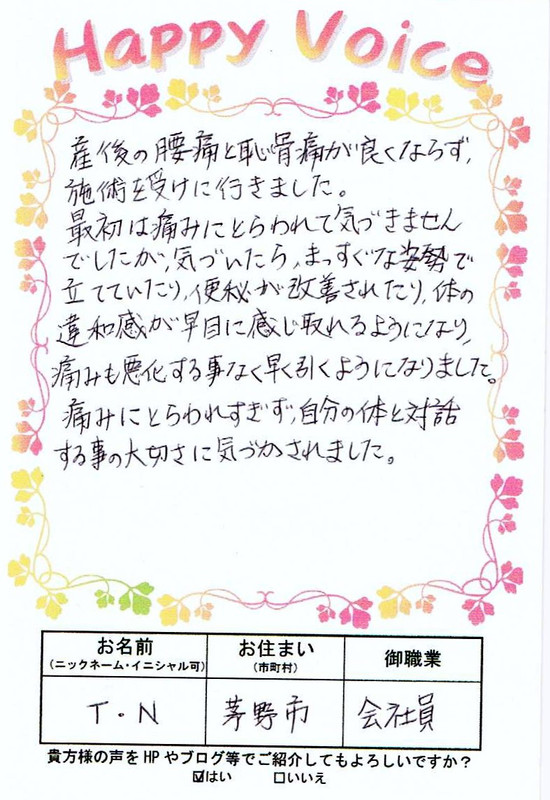 Happy Voice
産後の腰痛と恥骨痛が良くならず、
施術を受けに行きました。
最初は痛みにとらわれて気づきません
でしたが、気づいたら、まっすぐな姿勢で
立てていたり、便秘が改善されたり、体の
違和感が早目に感じ取れるようになり、
痛みも悪化する事なく早く引くようになりました。
痛みにとらわれすぎず、自分の体と対話
する事の大切さに気づかされました。
お名前 お住まい 御職業
(ニックネーム・イニシャル可) (市町村)
T・N 茅野市 会社員
貴方様の声をHPやブログ等でご紹介してもよろしいですか?
☑はい □いいえ